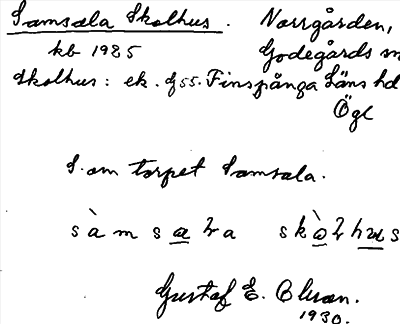 Samsala Skolhus. Norrgården,
kb 1925 Godegårds sn
Skolhus: ek. G 55. Finspånga Läns hd
Ögl
S. om torpet Samsala.
sàmsaɫa skòɫhus
Gustaf E. Olsson.
1930.